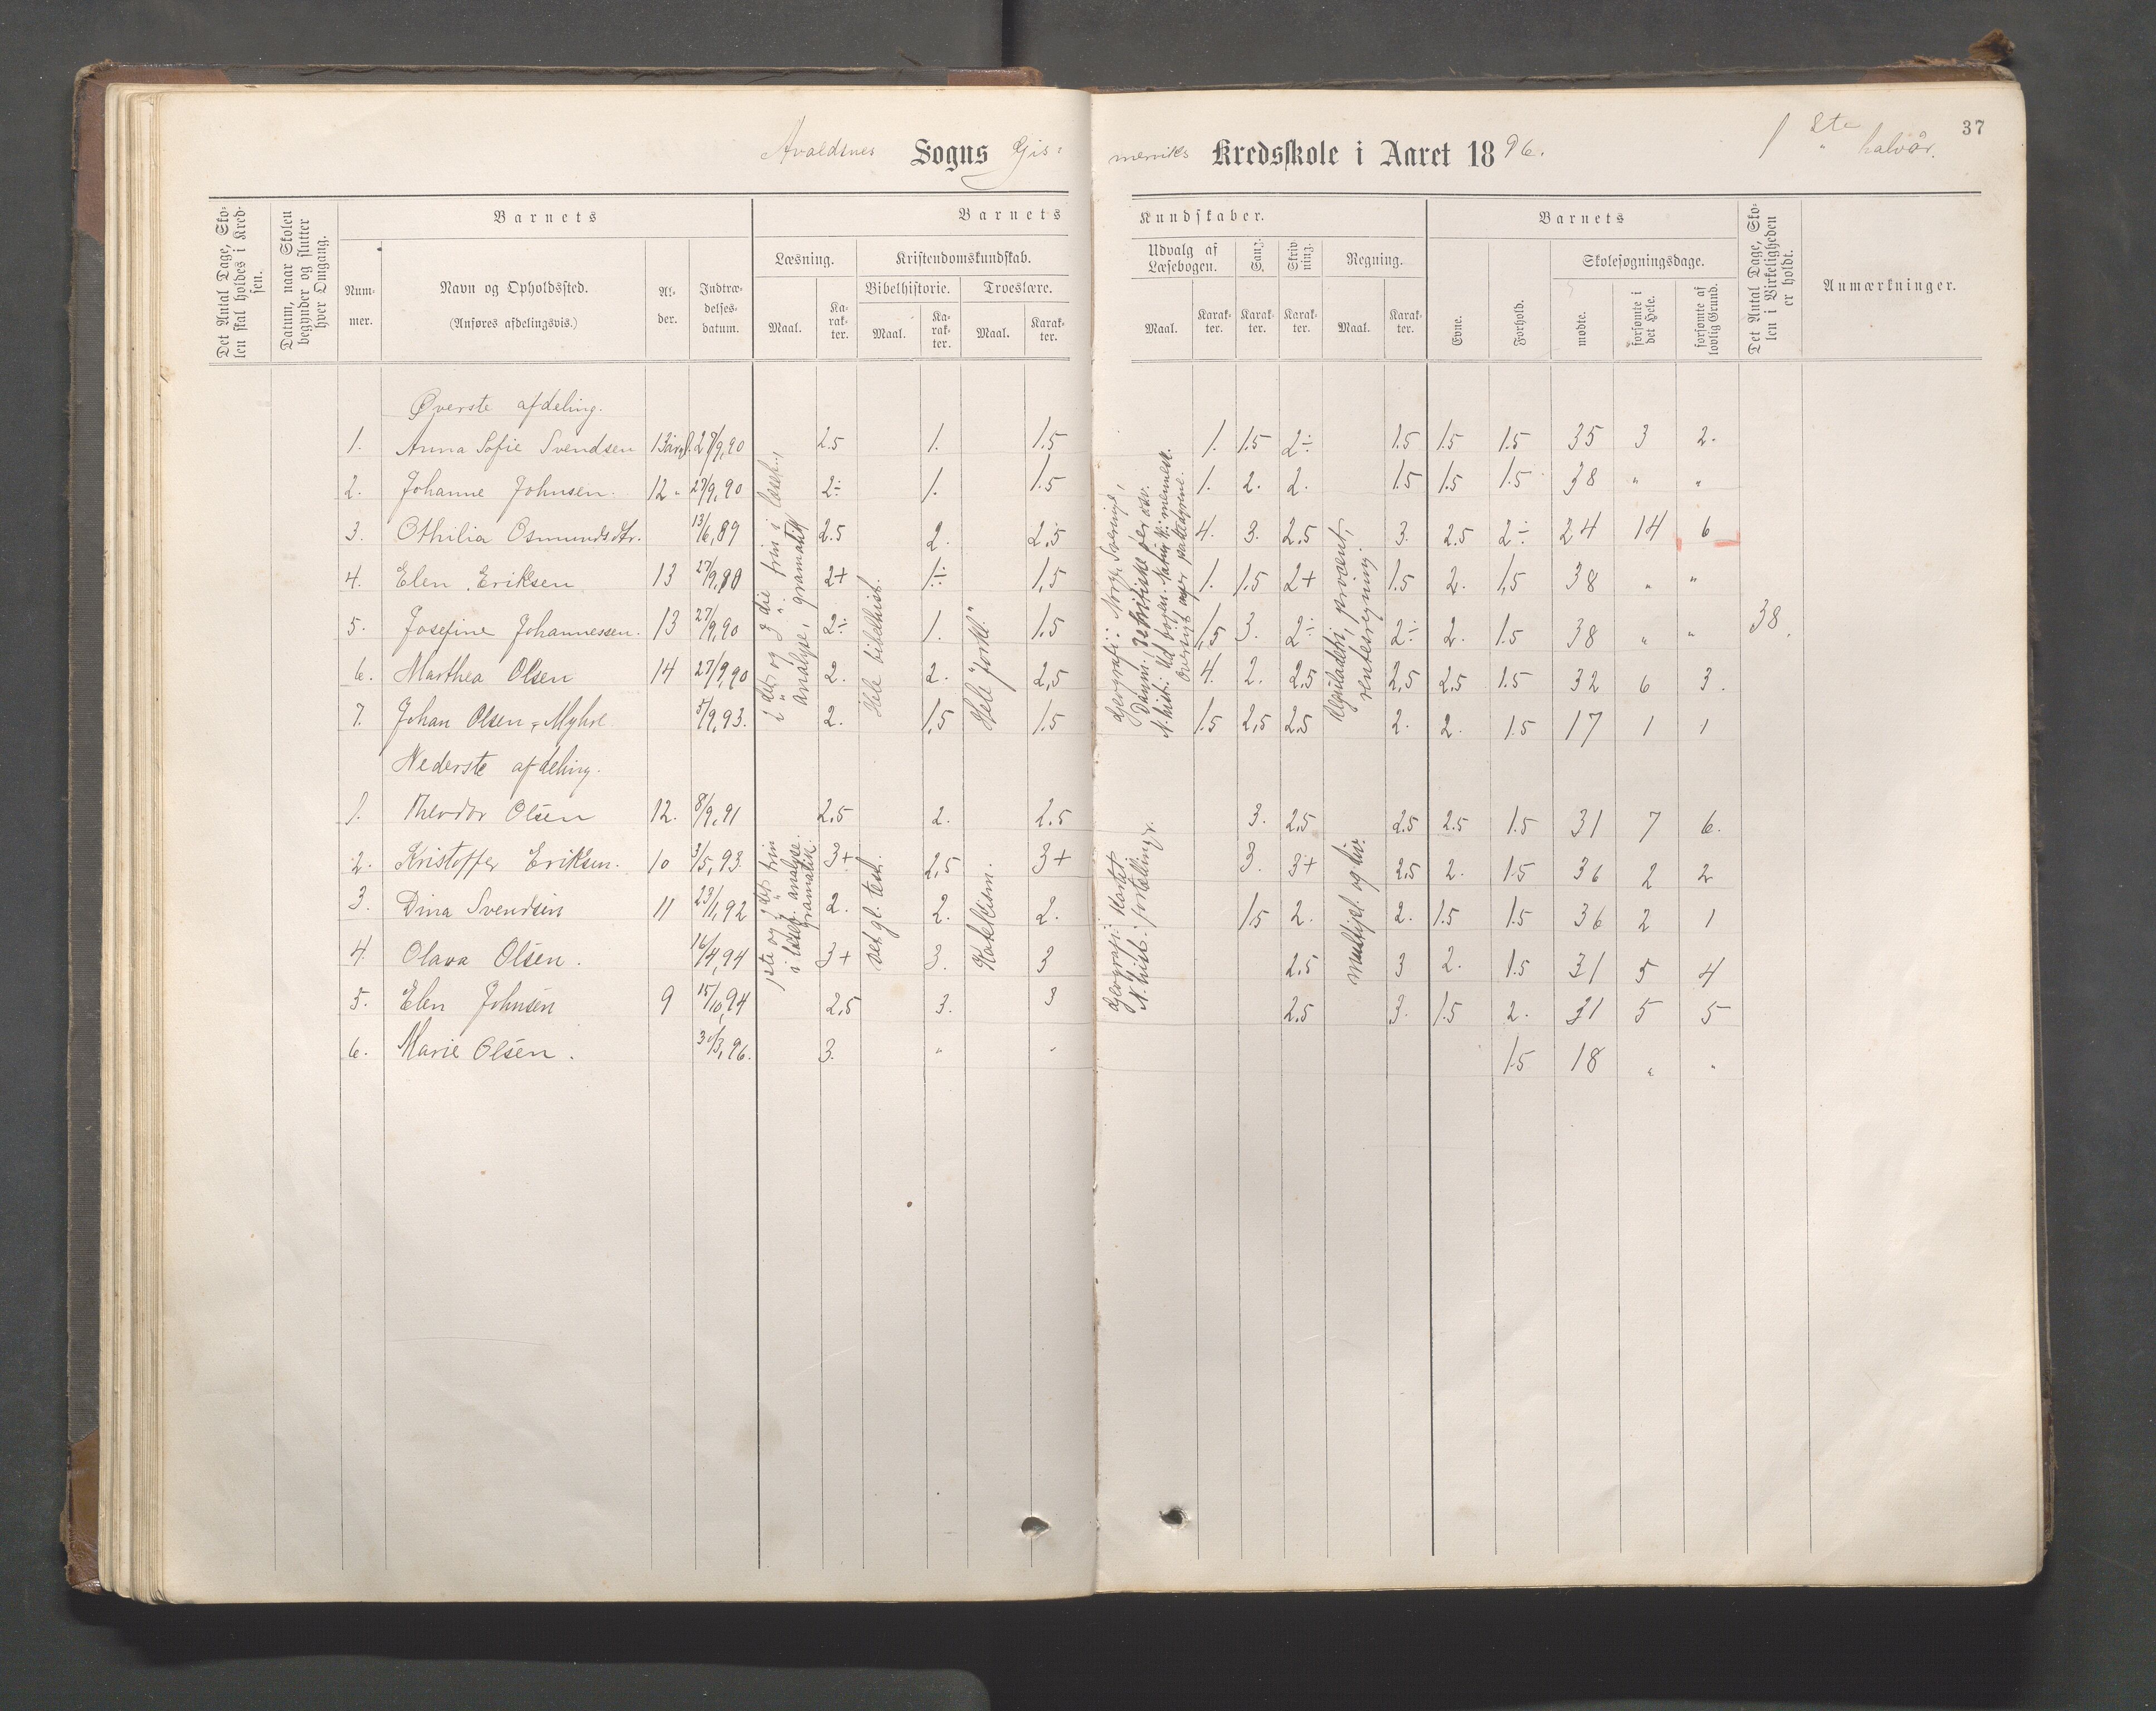 Avaldsnes Sogns Gis-
merviks Kredsskole i Aaret 1896.
1ste halvår.
37
Det Antal Dage, Sko-
len skal holdes i Kred-
sen.
Datum, naar Skolen
begynder og slutter
hver Omgang.
Barnets
Num-
mer.
Navn og Opholdssted.
(Anføres afdelingsvis.)
Al-
der.
Indtræ-
delses-
datum.
Barnets
Læsning.
Maal.
Ka-
rak-
ter.
Kristendomskundskab.
Bibelhistorie.
Maal.
Ka-
rak-
ter.
Troeslære.
Maal.
Karak-
ter.
Kundskaber.
Udvalg af
Læsebogen.
Maal.
Karak-
ter.
Sang.
Karak-
ter.
Skriv-
ning.
Karak-
ter.
Regning.
Maal.
Karak-
ter.
Barnets
Evne.
Forhold.
Skolesøgningsdage.
mødte.
forsømte i
det Hele.
forsømte af
lovlig Grund.
Det Antal Dage, Sko-
len i Virkeligheden
er holdt.
Anmærkninger.
Øverste afdeling.
1. Anna Sofie Svendsen 13 år 27/9,90 2.5 1. 1.5 1. 1.5 2÷ 1.5 1.5 1.5 35 3 2.
2. Johanne Johnsen. 12 " 27/9,90 2÷ 1. 1.5 1. 2. 2. 1.5 1.5 1.5 38 " "
3. Othilia Osmundsdtr. 13/6,89 2.5 2. 2.5 4. 3. 2.5 3. 2.5 2÷ 24 14 6
4. Elen Eriksen 13 27/9,90 2+ 1÷ 1,5 1. 1.5 2+ 1.5 2. 1,5 38 " "
5. Josefine Johannessen. 13 27/9,90 2÷ 1. 1.5 1,5 3. 2÷ 2÷ 2. 1.5 38 " " 38.
6. Marthea Olsen 14 27/9,90 2. 2. 2,5 4. 2. 2.5 2,5 2.5 1.5 32 6 3.
7. Johan Olsen, Myhre 5/9,93. 2. 1,5 1.5 1.5 2,5 2.5 2. 2. 1.5 17 1 1
2det og 3die trin i læseb.,
analyse, gramatik
Hele bibelhist.
Hele "forkl."
Geografi: Norge, Sverige,
N.hist.: Ud
Oversigt over pattedyrene.
Reguladetri, procent,
rentesregning.
Nederste afdeling.
1. Theodor Olsen 12. 8/9,91 2,5 2. 2.5 3. 2.5 2.5 2.5 1.5 31 7 6.
2. Kristoffer Eriksen. 10 3/5,93. 3+ 2,5 3+ 3. 3+ 2,5 2. 1.5 36 2 2
3. Dina Svendsen 11 23/1,92 2. 2. 2. 1.5 2. 2. 1.5 1.5 36 2 1
4. Olava Olsen. 16/4,94 3+ 3. 3 2.5 3 2. 1.5 31 5 4
5. Elen Johnsen 9 15/10,94 2,5 3. 3 2.5 3. 1.5 2. 31 5 5
6. Marie Olsen. 30/3,96. 3. " " 1.5 18 " "
1ste og 2det trin
i læseb. analyse.
gramatik.
Det gl. test.
Katekism.
Geografi: Kartet
N.hist.: fortællinger.
multipl. og div.